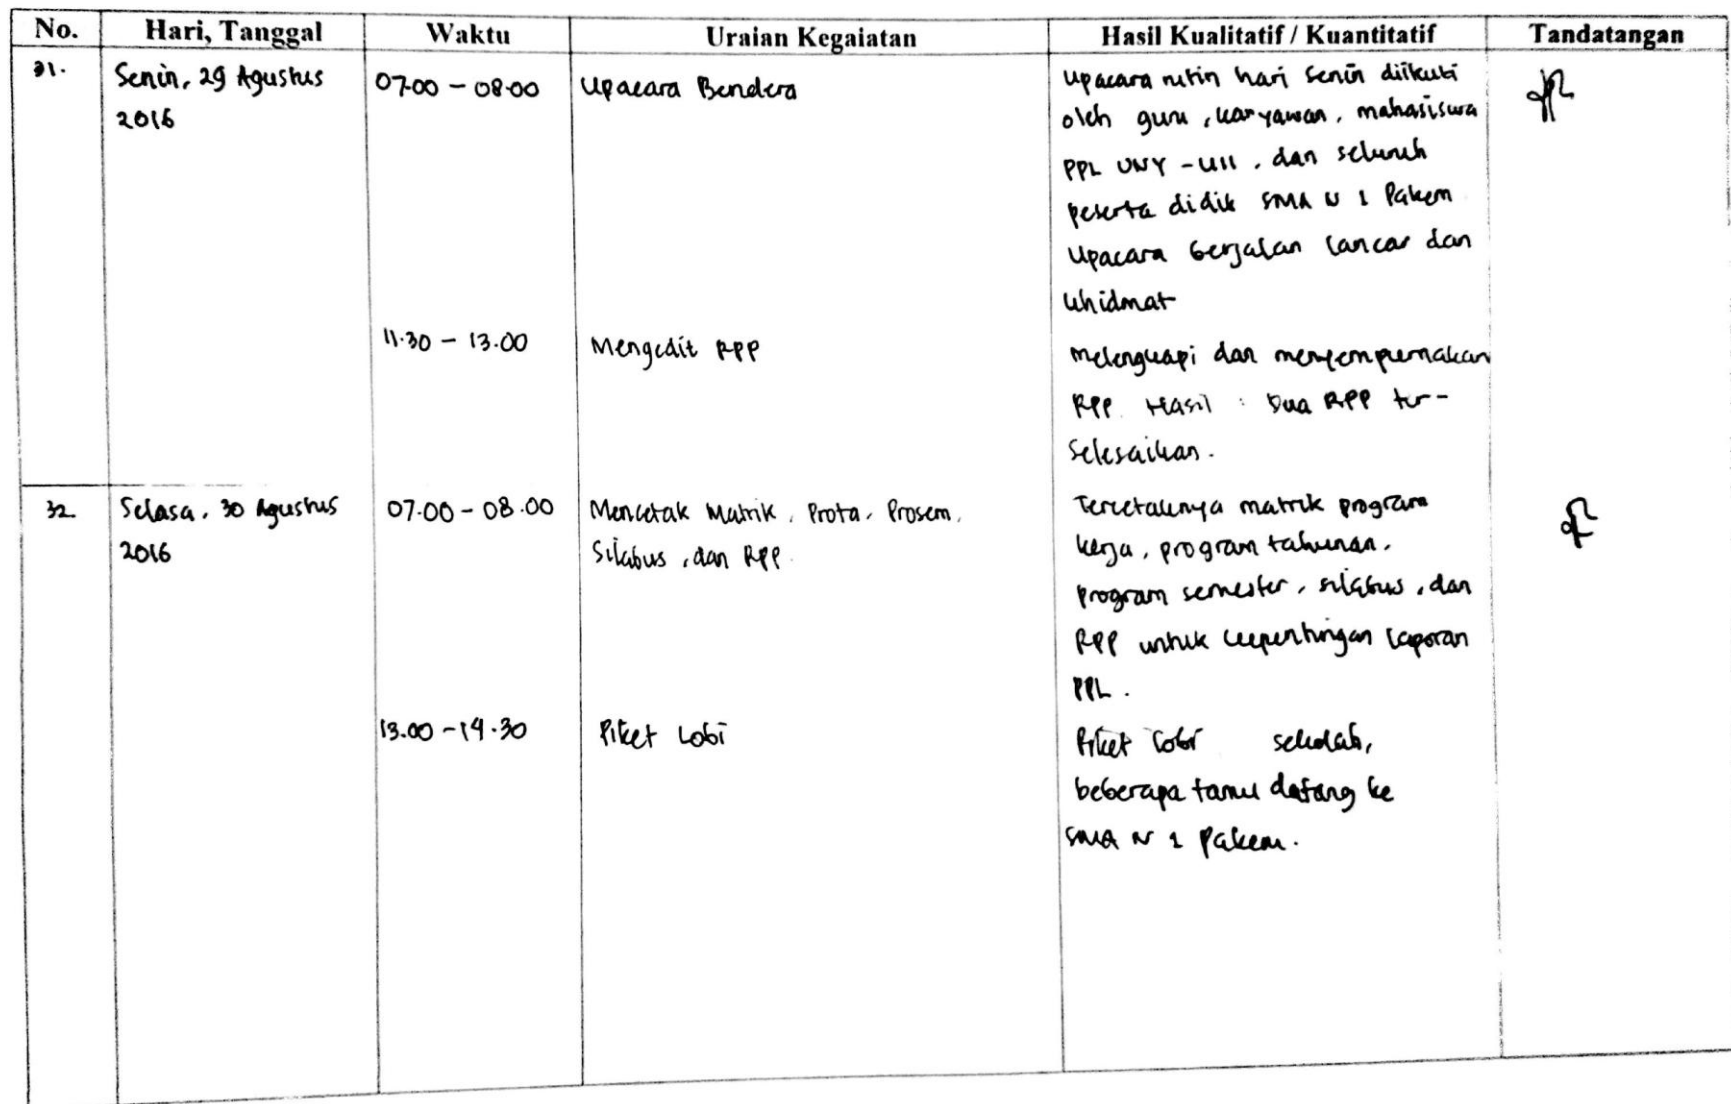 No. Hari, Tanggal Waktu Uraian Kegaiatan Hasil Kualitatif / Kuantitatif Tandatangan
31. Senin, 29 Agustus 07.00 - 08.00 Upacara Bendera Upacara rutin hari Senin diikuti
2016 oleh guru, karyawan, mahasiswa
PPL UNY - UII, dan seluruh
peserta didik SMA N 1 Pakem
Upacara berjalan lancar dan
khidmat
11.30 - 13.00 Mengedit RPP Melengkapi dan menyempurnakan
RPP. Hasil : Dua RPP ter-
selesaikan.
32. Selasa, 30 Agustus 07.00 - 08.00 Mencetak Matrik, Prota, Prosem, Tercetaknya matrik program
2016 Silabus, dan RPP. kerja, program tahunan,
program semester, silabus, dan
RPP untuk kepentingan laporan
PPL.
13.00 - 14.30 Piket Lobi Piket Lobi sekolah,
beberapa tamu datang ke
SMA N 1 Pakem.